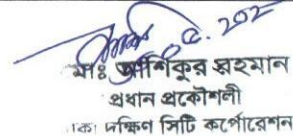 মোঃ আশিকুর রহমান
প্রধান প্রকৌশলী
ঢাকা দক্ষিণ সিটি কর্পোরেশন